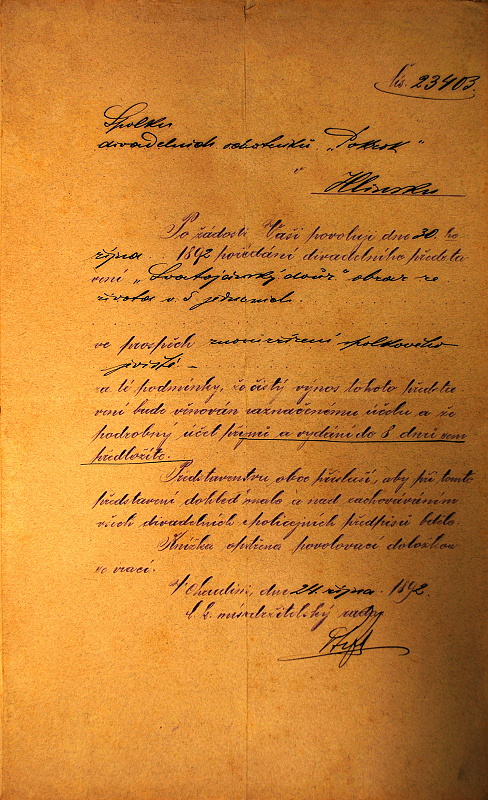 Čís. 23403.
Spolku
divadelních ochotníků „Pokrok“
v
Hlinsku
Po žádosti Vaší povoluji dne 30. ho
října 1892 pořádání divadelního předsta
vení „Svatojánský dvůr“ obraz ze
života v 5 jednáních.
ve prospěch znovuzřízení spolkového
jeviště
za té podmínky, že čistý výnos tohoto předsta
vení bude věnován naznačenému účelu a že
podrobný účet příjmů a vydání do 8 dnů sem
předložíte.
Představenstvu obce přísluší, aby při tomto
představení dohled mělo a nad zachováváním
všech divadelních a policejních předpisů bdělo.
Knížka opatřena povolovací doložkou
se vrací.
V Chrudimi, dne 24. října 1892.
C. k. místodržitelský rada